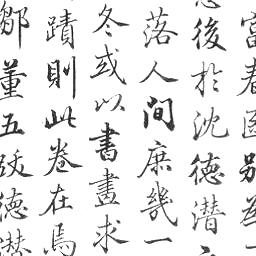 富春圖別為
後於沈德潛
落人間庶幾一
冬或以書畫求
蹟則此卷在焉
鄒董五跋德潛